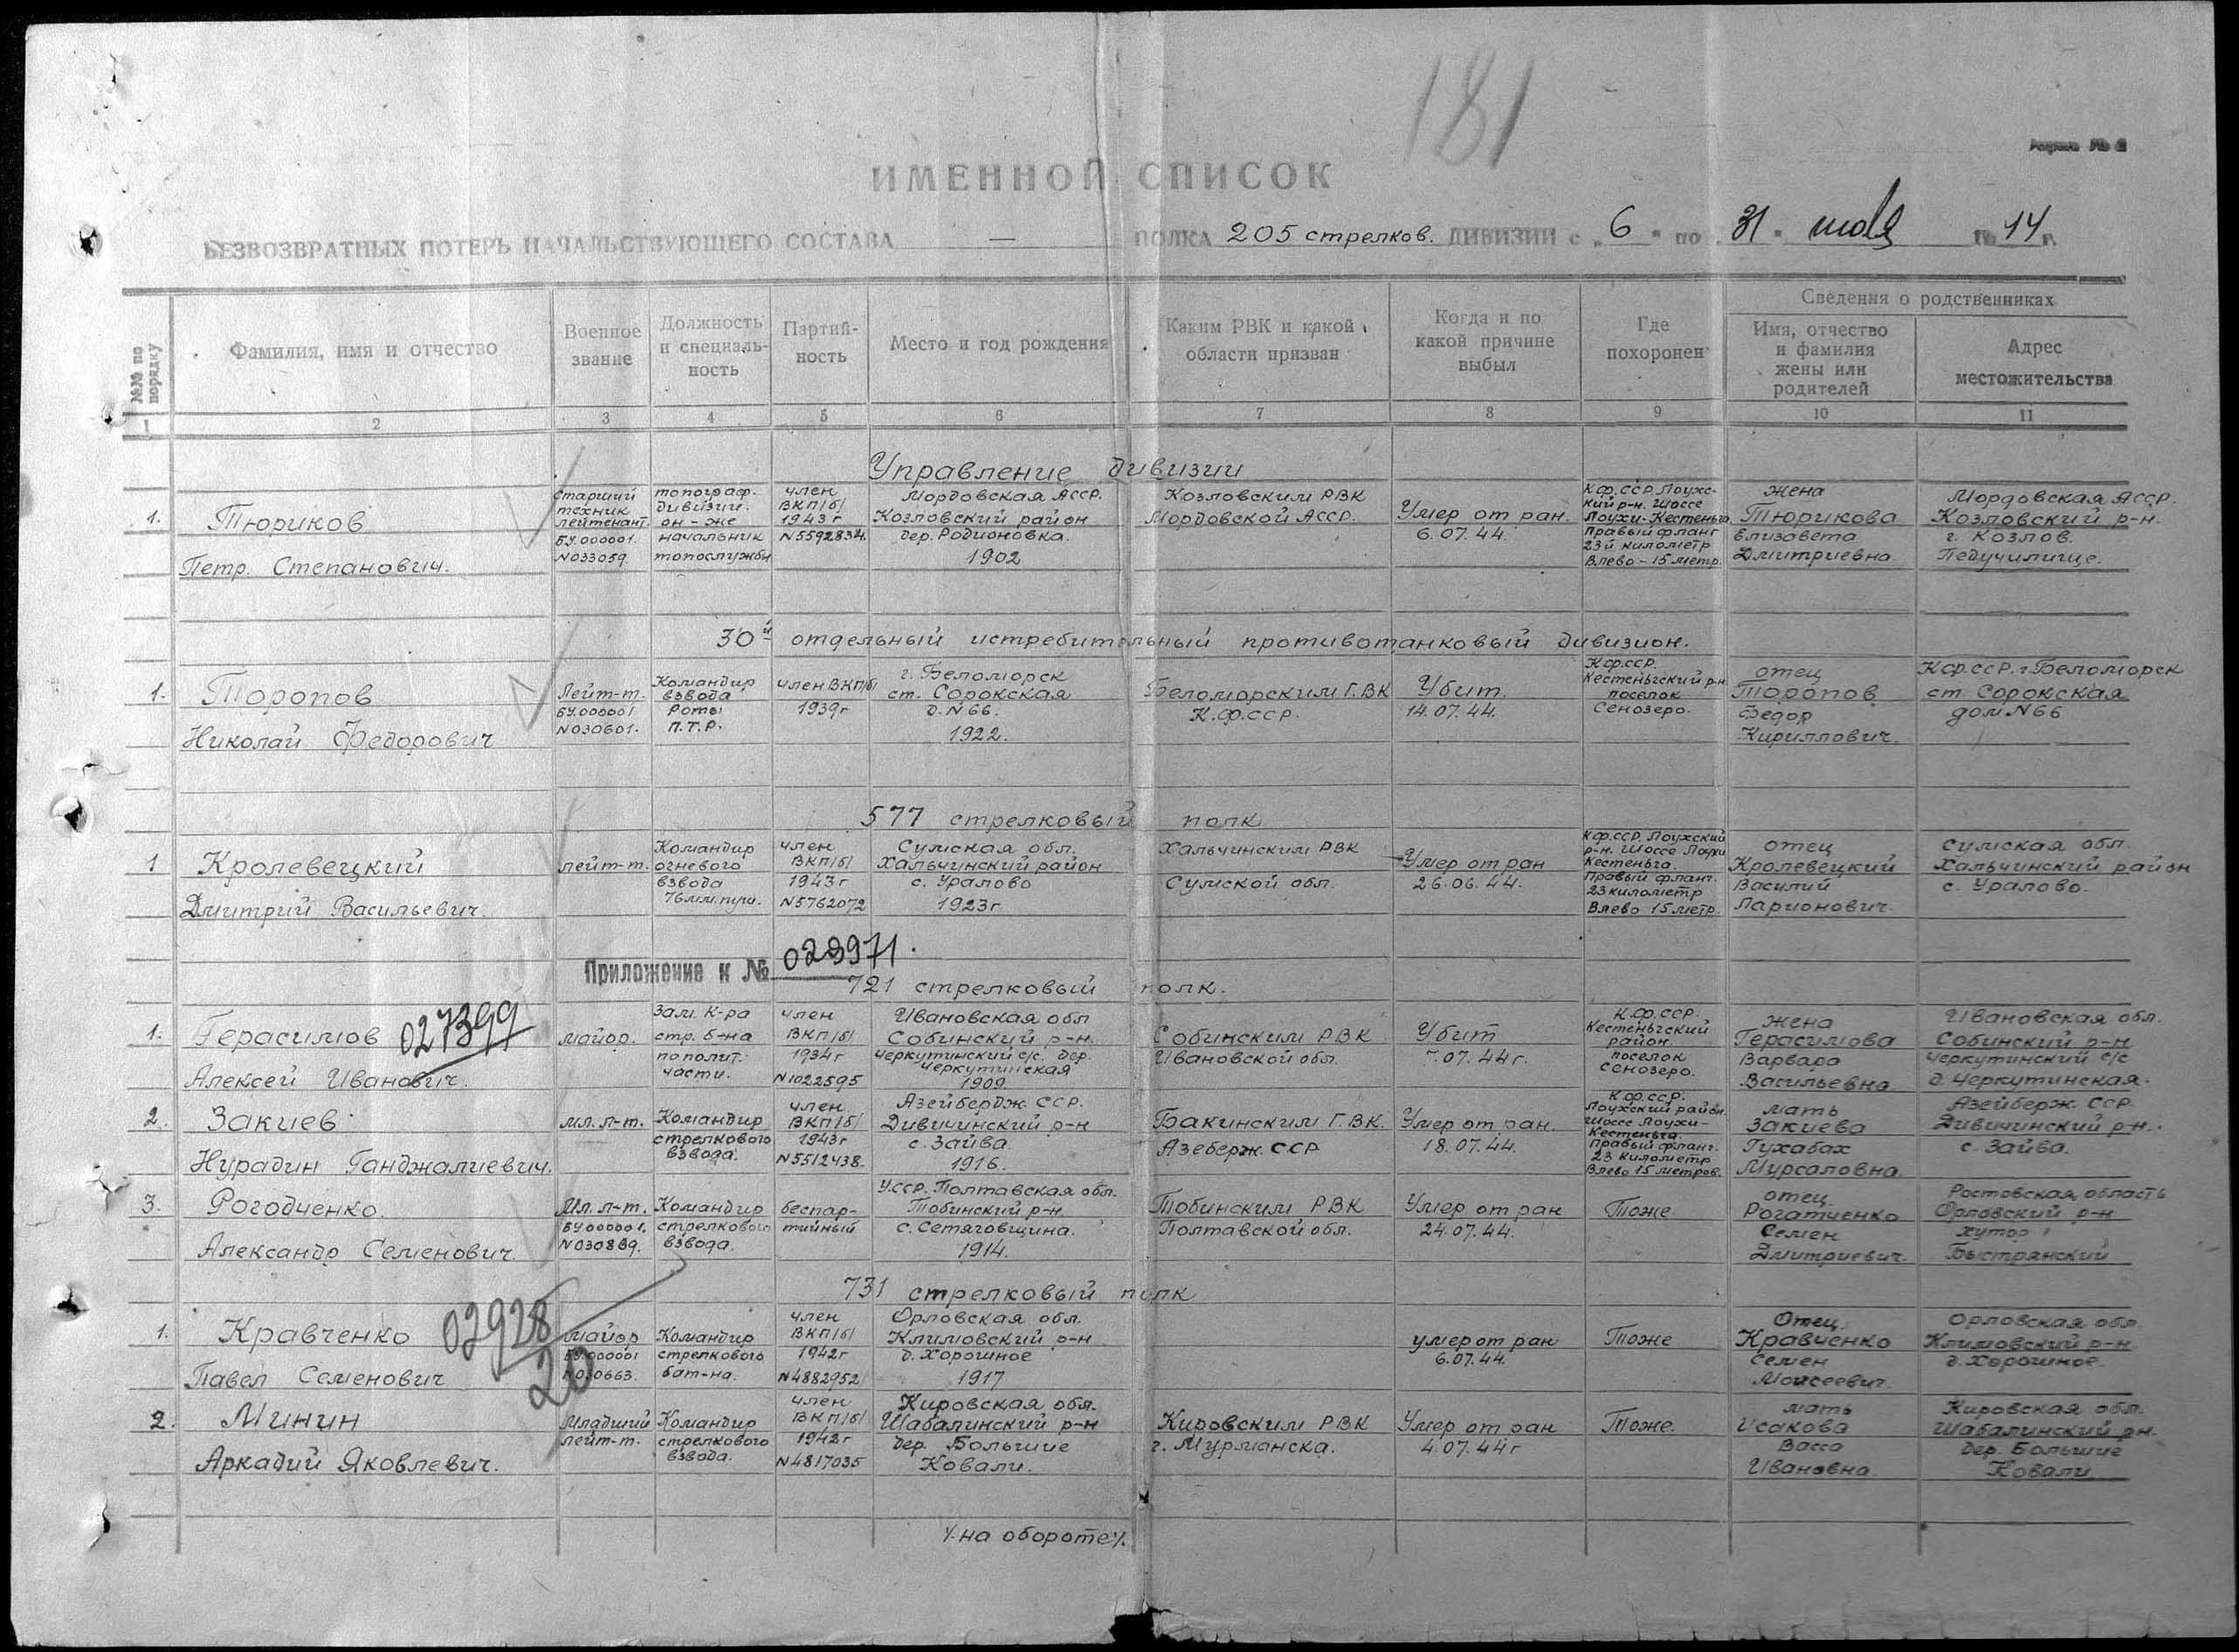 181
Форма № 2
ИМЕННОЙ СПИСОК
БЕЗВОЗВРАТНЫХ ПОТЕРЬ НАЧАЛЬСТВУЮЩЕГО СОСТАВА — ПОЛКА 205 стрелков. ДИВИЗИИ с „6" по „31" июля 1944 г.
№№ по порядку
Фамилия, имя и отчество
Военное звание
Должность и специаль-ность
Партий-ность
Место и год рождения
Каким РВК и какой области призван
Когда и по какой причине выбыл
Где похоронен
Сведения о родственниках
Имя, отчество и фамилия жены или родителей
Адрес местожительства
1 2 3 4 5 6 7 8 9 10 11
Управление дивизии
1.
Тюриков
Петр. Степанович.
Старший
техник
лейтенант.
БУ.000001.
N033059.
топограф.
дивизии.
он-же
начальник
топослужбы
член
ВКП/б/
1943г
N5592834.
Мордовская АССР.
Козловский район
дер. Родионовка.
1902
Козловским РВК
Мордовской АССР.
Умер от ран.
6.07.44.
К.ф.ССР Лоухс-
кий р-н. Шоссе
Лоухи-Кестеньга
Правый фланг
23й километр
Влево-15 метр.
жена
Тюрикова
Елизавета
Дмитриевна
Мордовская АССР.
Козловский р-н.
г. Козлов.
Педучилище.
30й отдельный истребительный противотанковый дивизион.
1.
Торопов
Николай Федорович
Лейт-т.
БУ.000001
N030601.
Командир
взвода
Роты
П.Т.Р.
член ВКП/б/
1939г
г. Беломорск
ст. Сорокская
д. N66.
1922.
Беломорским Г.ВК
К.Ф.ССР.
Убит.
14.07.44.
К.ф.ССР.
Кестеньгский р-н.
поселок
Сенозеро.
отец
Торопов
Федор
Кириллович.
К.ф.ССР. г. Беломорск
ст. Сорокская
дом N66
577 стрелковый полк
1
Кролевецкий
Дмитрий Васильевич.
лейт-т.
Командир
огневого
взвода
76мм. пуш.
член
ВКП/б/
1943г
N5762072
Сумская обл.
Хальчинский район
с. Уралово
1923г
Хальчинским РВК
Сумской обл.
Умер от ран
26.06.44.
К.ф.ССР. Лоухский
р-н. Шоссе Лоухи
Кестеньга.
Правый фланг.
23 километр
Влево 15 метр.
отец
Кролевецкий
Василий
Ларионович.
Сумская обл.
Хальчинский район
с. Уралово.
Приложение к № 023971.
721 стрелковый полк.
1.
Герасимов 027399
Алексей Иванович.
майор.
Зам. К-ра
стр. б-на
по полит.
части.
член
ВКП/б/
1934г
N1022595
Ивановская обл
Собинский р-н.
Черкутинский с/с. дер.
Черкутинская
1909.
Собинским РВК
Ивановской обл.
Убит
7.07.44г.
К.ф.ССР.
Кестеньгский
район.
поселок
Сенозеро.
жена
Герасимова
Варвара
Васильевна
Ивановская обл.
Собинский р-н
Черкутинский с/с
д. Черкутинская.
2.
Закиев
Нурадин Ганджалиевич.
мл. л-т.
Командир
стрелкового
взвода.
член
ВКП/б/
1943г
N5512438.
Азейбердж. ССР.
Дивичинский р-н
с. Зайва.
1916.
Бакинским Г.ВК.
Азеберж. ССР
Умер от ран.
18.07.44.
К.ф.ССР.
Лоухский район.
шоссе Лоухи-
Кестеньга.
Правый фланг.
23 километр
Влево 15 метров.
мать
Закиева
Гухабах
Мурсаловна.
Азейберж. ССР.
Дивичинский р-н.
с. Зайва.
3.
Рогодченко.
Александр Семенович.
Мл. л-т.
БУ000001.
N030889.
Командир
стрелкового
взвода.
беспар-
тийный
У.ССР. Полтавская обл.
Тобинский р-н
с. Сетяговщина.
1914.
Тобинским РВК
Полтавской обл.
Умер от ран
24.07.44.
Тоже
отец
Рогатченко
Семен
Дмитриевич.
Ростовская область
Орловский р-н
хутор
Быстрянский
731 стрелковый полк
1.
Кравченко 02928/20
Павел Семенович
майор
БУ.000001
N030663.
Командир
стрелкового
бат-на.
член
ВКП/б/
1942г
N4882952
Орловская обл.
Климовский р-н
д. Хорошное
1917
умер от ран
6.07.44.
Тоже
Отец
Кравченко
Семен
Моисеевич.
Орловская обл
Климовский р-н
д. Хорошное
2.
Минин
Аркадий Яковлевич.
Младший
лейт-т.
Командир
стрелкового
взвода.
член
ВКП/б/
1942г
N4817035
Кировская обл.
Шабалинский р-н
дер. Большие
Ковали.
Кировским РВК
г. Мурманска.
Умер от ран
4.07.44г
Тоже.
мать
Исакова
Васса
Ивановна
Кировская обл.
Шабалинский р-н.
дер. Большие
Ковали
/.на обороте/.